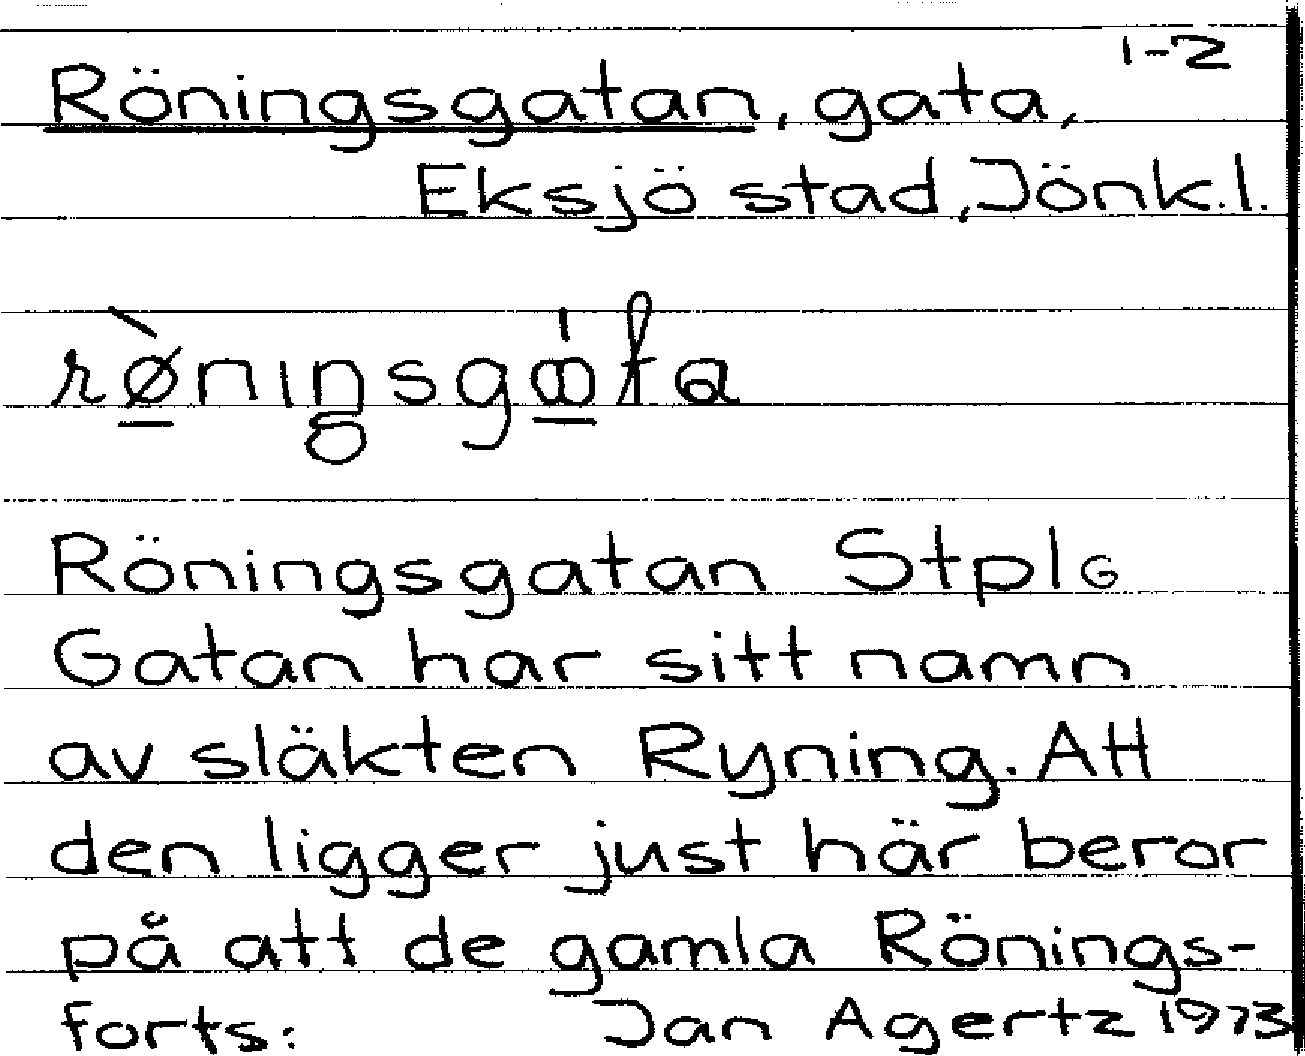 1-2
Röningsgatan, gata,
Eksjö stad, Jönk.l.
Röningsgatan StplG
Gatan har sitt namn
av släkten Ryning. Att
den ligger just här beror
på att de gamla Rönings-
forts: Jan Agertz 1973